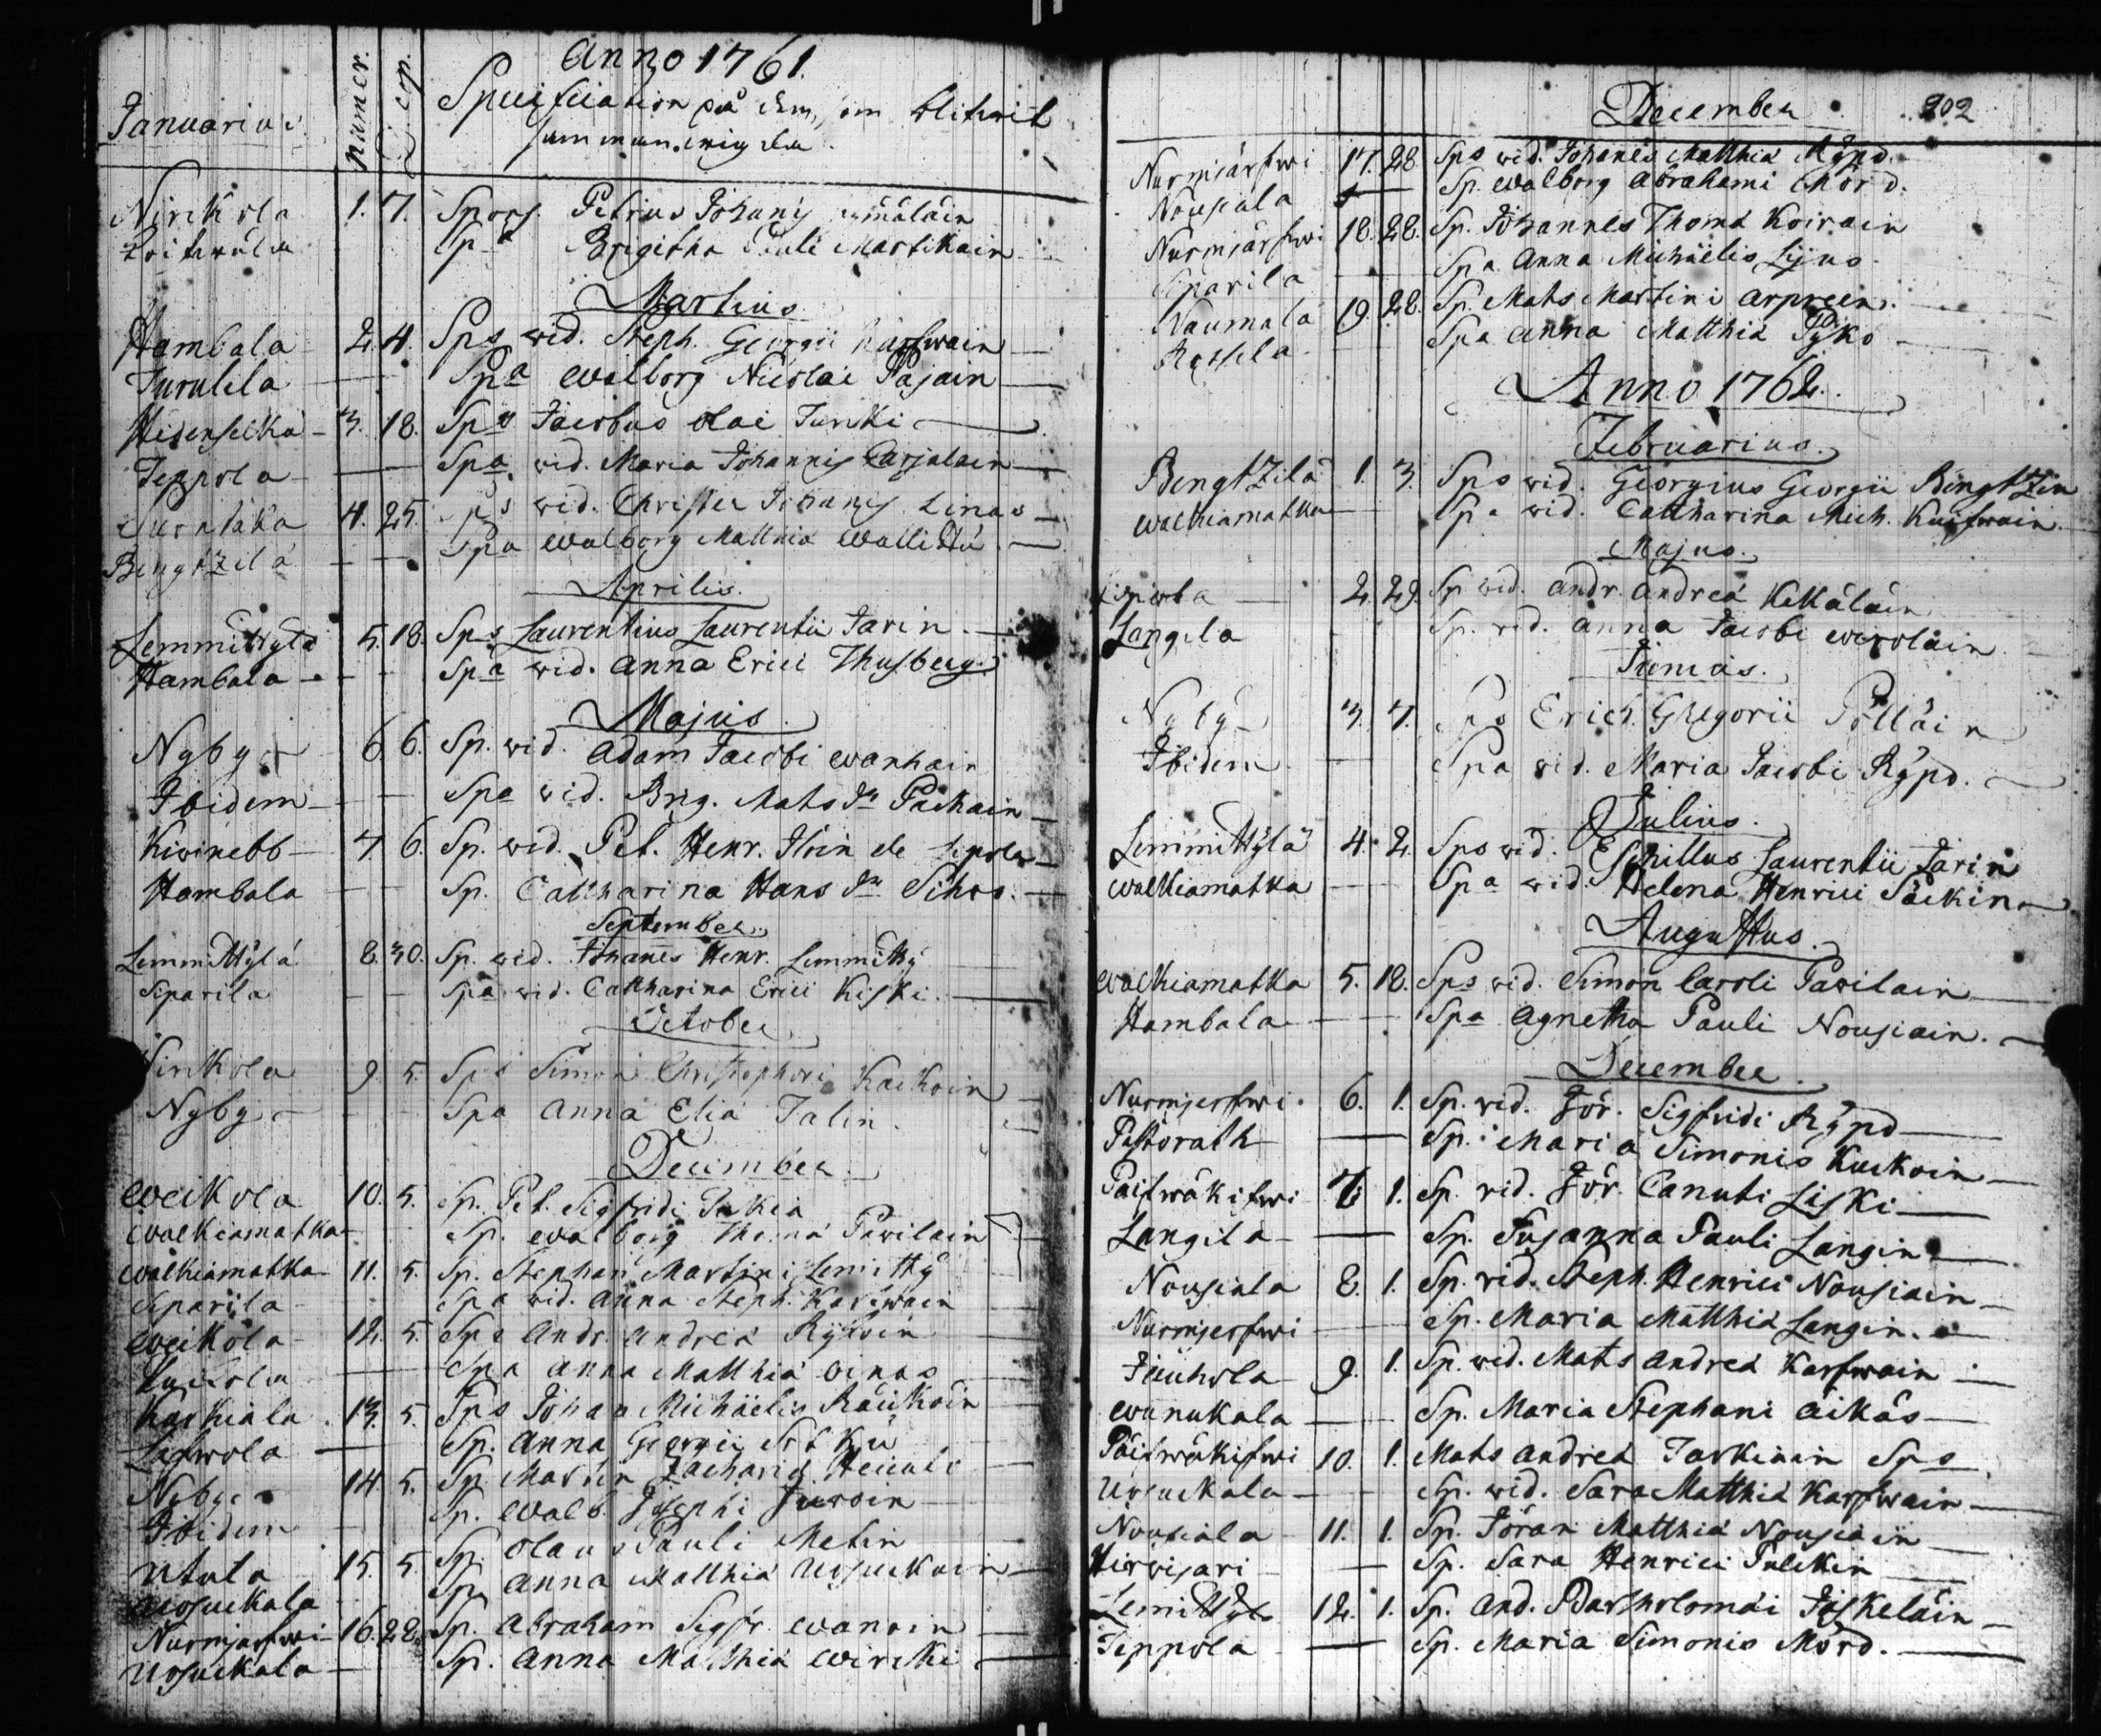 Anno 1761.
Januarius numer. D. cop. Specification på dem, som blifwit
sammanwigda.
Nirckola 1. 7. Spons. Petrus Johannis
Spa Brigitha Pauli Martikain
Martius
Hambala 2. 4. Sps wid. Steph. Georgii
Turulila Spa Walborg Nicolai Pajain
Hisenselkä 3. 18. Sps Jacobus Olai Turki
Teppola Spa wid. Maria Johannis Carjalain
4. 25. Sps wid. Christer Johannis Linas
Bengtzilä Spa Walborg Matthiæ
Aprilis.
Lemmittylä 5. 18. Sps Laurentius Laurentii Jarin
Hambala Spa wid. Anna Erici Thusberg
Majus
Nyby 6. 6. Sp. wid. Adam Jacobi Wanhain
Ibidem Spa wid. Brig. Mats dr Päckain
Kivinebb 7. 6. Sp. wid. Pet. Henr. Iloin de
Hambala Sp. Catharina Hans dr Sihvo.
September
Lemmittylä 8. 30. Sp. wid. Johannes Henr. Lemmitty
Siparila Spa wid. Catharina Erici Kiski.
October
Nirikola 9 5. Sps Simon Christophori Kaekoin
Nyby Spa Anna Eliæ Talin.
December
Weikola 10. 5. Sp. Pet. Sigfridi
Walkiamatka Sp. Walborg Thomæ Pavilain
Walkiamatka 11. 5. Sp. Stephan Martini Lemitty
Siparila Spa wid. Anna Steph. Karfwain
Weikola 12. 5. Sps Andr. Andreæ
Spa Anna Matthiæ
Karkiala 13. 5. Sps Johan Michäelis Räikköin
Lafwola Sp. Anna Georgii
Nyby 14. 5. Sp. Martin Zachariæ
Ibidem Sp. Walb. Josephi
Utula 15. 5 Sp. Olaus Pauli Metin
Uosuckala Sp. Anna Matthiæ Uosuckain
Nurmjärfwi 16. 28. Sp. Abraham Sigfr. Wanoin
Uosuckala Sp. Anna Matthiæ
December 202
Nurmjärfwi 17. 28 Sps wid. Johanes Matthiæ Rÿpd.
Nousiala Sp. Walborg Abrahami Mörd.
Nurmjärfwi 18. 28. Sp. Johannes Thomæ Koirain
Siparila Spa Anna Michäelis Lijus
Naumala 19. 28. Sp. Mats Martini
Spa Anna Matthiæ
Anno 1762.
Februarius.
Bengtzilä 1. 3. Sps wid. Georgius Georgii Bengtzin
Walkiamatka Spa wid. Catharina Mich.
Majus.
2. 29. Sp wid. Andr. Andreæ Kekäläin
Langila Sp. wid. Anna Jacobi Werolain
Junius.
Nyby 3. 7. Sps Erich Gregorii Pölläin
Ibidem Spa wid. Maria Jacobi Rÿpd.
Julius.
Lemmittylä 4. 2. Sps wid. Eschillus Laurentii Jarin
Walkiamatka Spa wid. Helena Henrici Säckin
Augustus.
Walkiamatka 5. 18. Sps wid. Simon Caroli Pavilain
Hambala Spa Agnetha Pauli Nousiain.
December.
Nurmjerfwi 6. 1. Sp. wid. Jör. Sigfridi Rÿpd
Pastorath Sp. Maria Simonis Kuckoin
Päifwäkifwi 7. 1. Sp. wid. Jör. Canuti Liski
Langila Sp. Susanna Pauli Langin
Nousiala 8. 1. Sp. wid. Steph. Henrici Nousiain
Nurmjerfwi Sp. Maria Matthiæ Langin.
9. 1. Sp. wid. Mats Andreæ Karfwain
Wanukala Sp. Maria Stephani Äikäs
Päifwäkifwi 10. 1. Mats Andreæ Tarkiain Sps
Uosuckala Sp. wid. Sara Matthiæ Karfwain
Nousiala 11. 1. Sp. Jöran Matthiæ Nousiain
Hirvisari Sp. Sara Henrici Pulckin
Lemittylä 12. 1. Sp. And. Bartholomæi Jäskeläin
Teppola Sp. Maria Simonis Mörd.